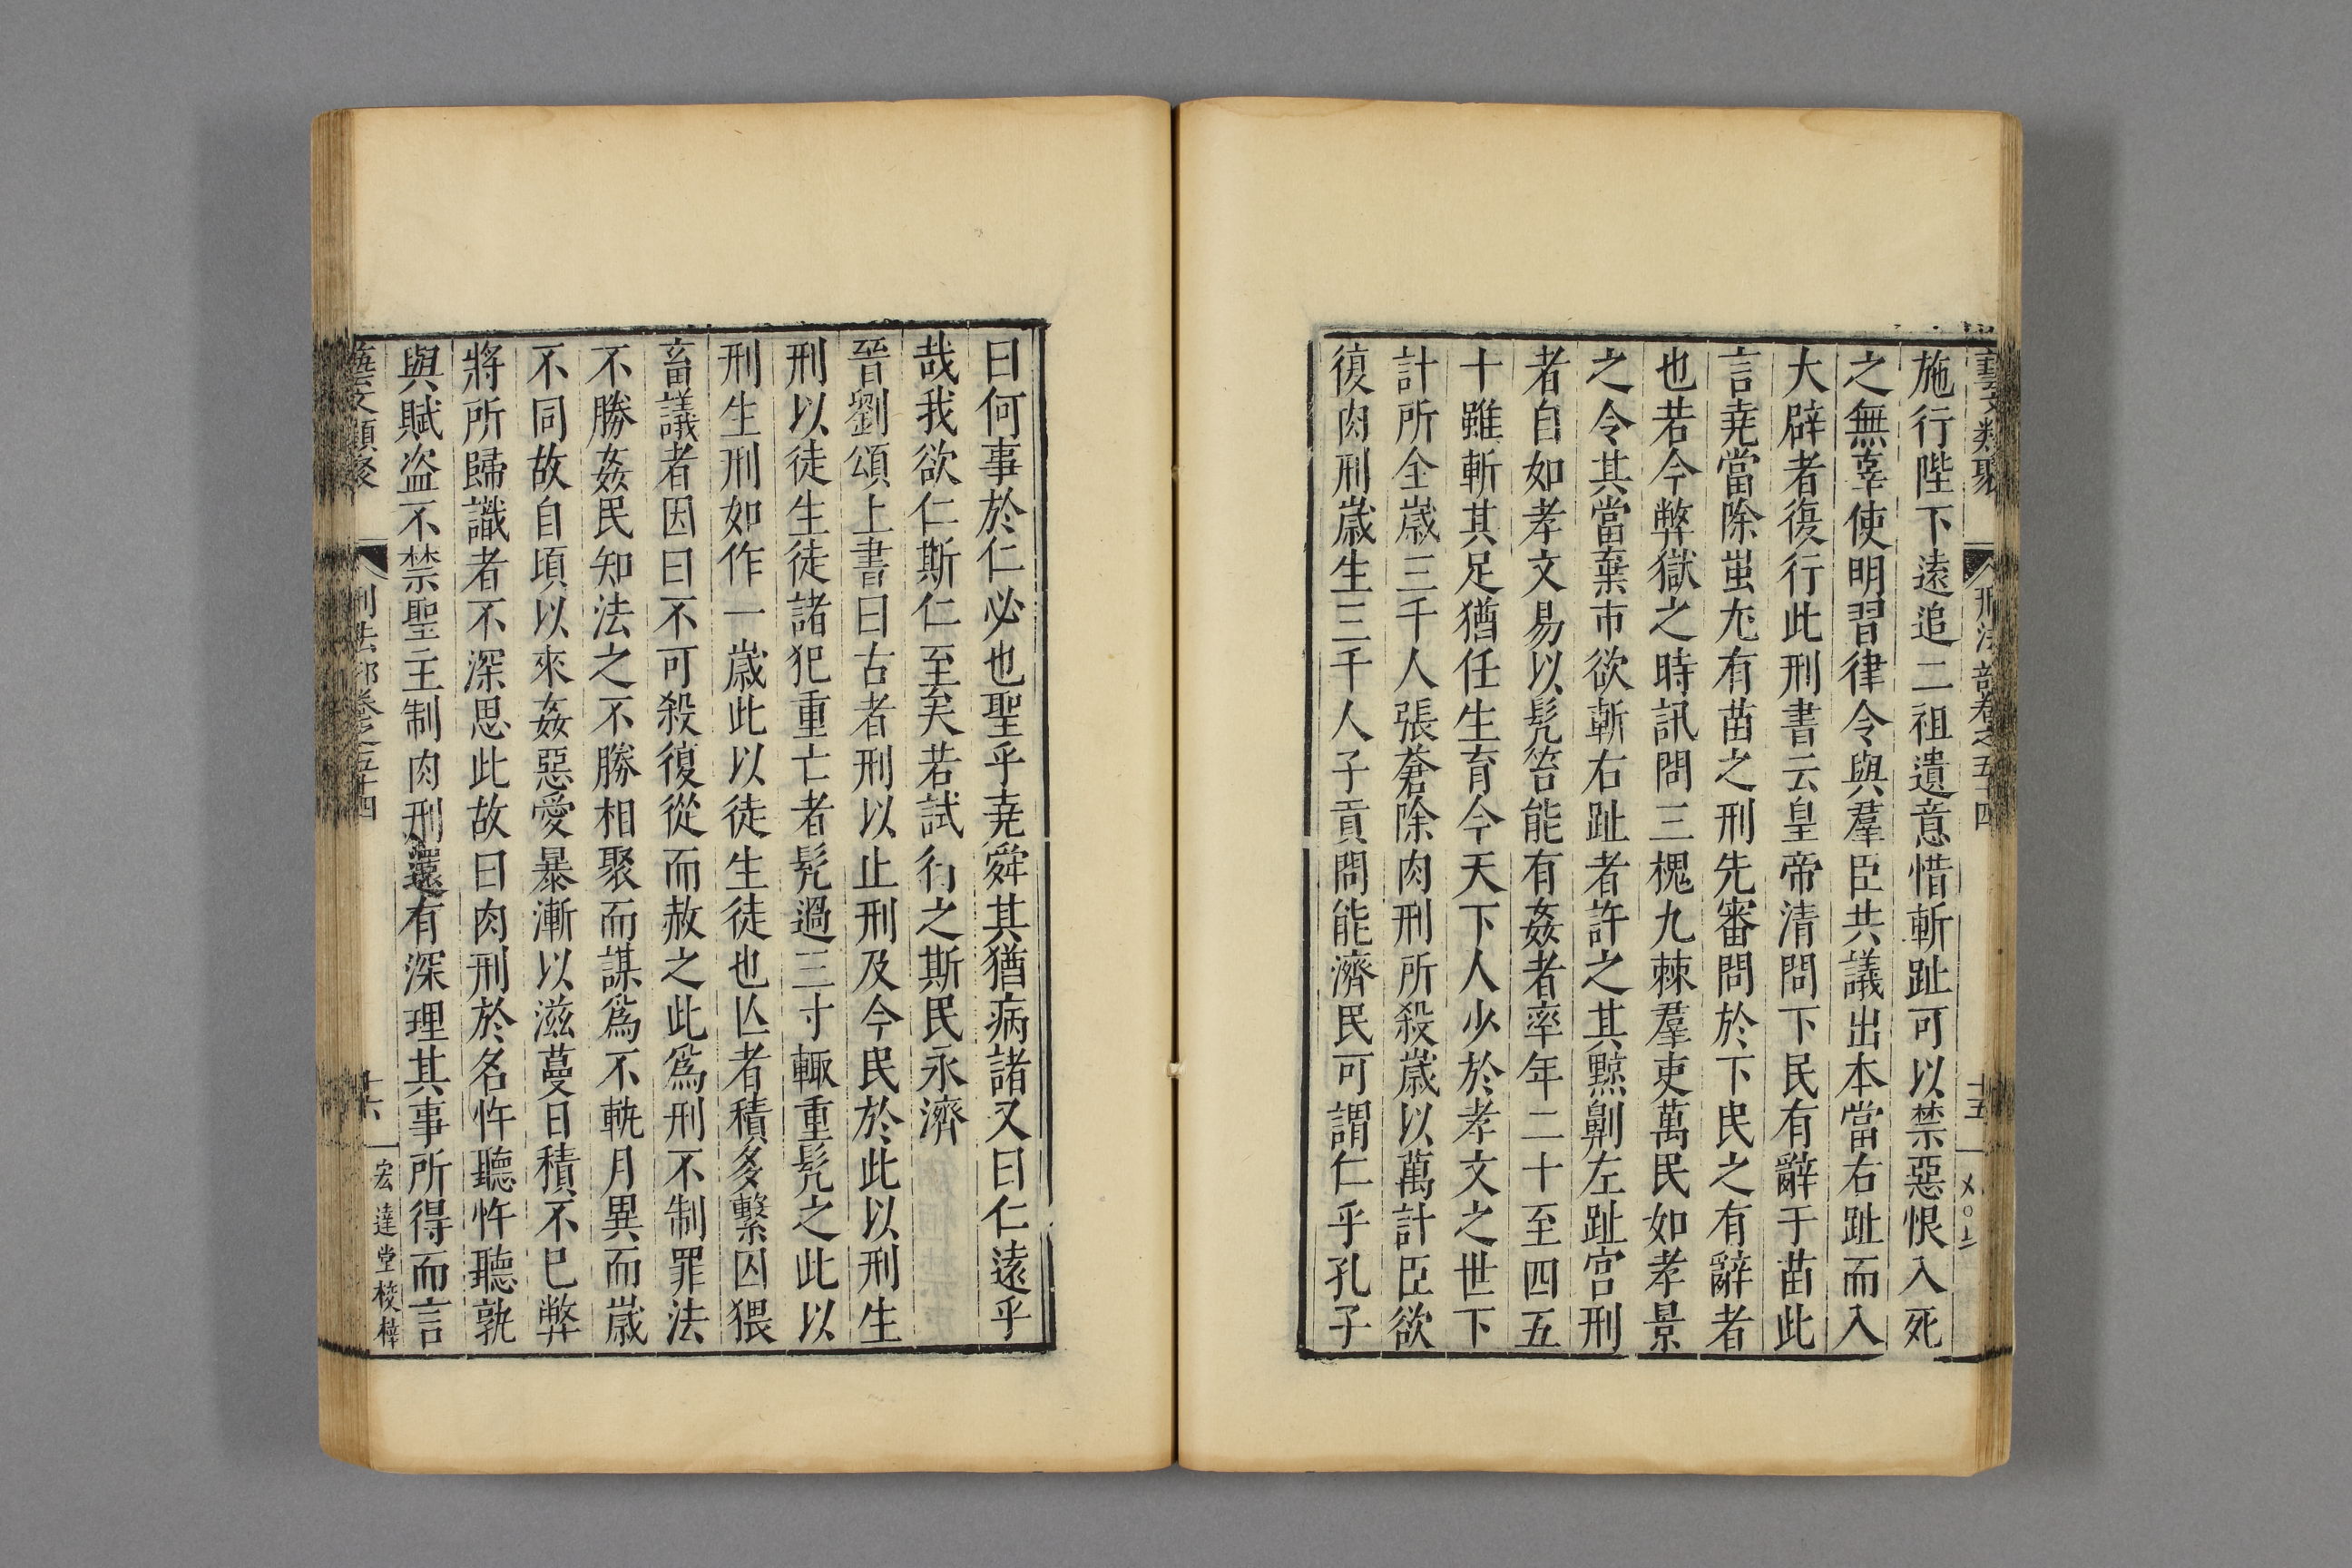 藝文類聚 刑法部卷之五十四 十五
施行陛下遠追二祖遺意惜斬趾可以禁惡恨入死
之無辜使明習律令與羣臣共議出本當右趾而入
大辟者復行此刑書云皇帝清問下民有辭于苗此
言堯當除蚩尤有苗之刑先審問於下民之有辭者
也若今弊獄之時訊問三槐九棘羣吏萬民如孝景
之令其當棄市欲斬右趾者許之其黥劓左趾宮刑
者自如孝文易以髠笞能有姦者率年二十至四五
十雖斬其足猶任生育今天下人少於孝文之世下
計所全嵗三千人張蒼除肉刑所殺嵗以萬計臣欲
復肉刑嵗生三千人子貢問能濟民可謂仁乎孔子
曰何事於仁必也聖乎堯舜其猶病諸又曰仁遠乎
哉我欲仁斯仁至矣若試行之斯民永濟
晉劉頌上書曰古者刑以止刑及今民於此以刑生
刑以徒生徒諸犯重亡者髠過三寸輙重髠之此以
刑生刑如作一嵗此以徒生徒也亾者積多繫囚猥
畜議者因曰不可殺復從而赦之此爲刑不制罪法
不勝姦民知法之不勝相聚而謀爲不軌月異而嵗
不同故自頃以來姦惡愛暴漸以滋蔓日積不已弊
將所歸識者不深思此故曰肉刑於名忤聽忤聽孰
與賦盗不禁聖主制肉刑還有深理其事所得而言
藝文類聚 刑法部卷之五十四 十六 宏達堂校梓